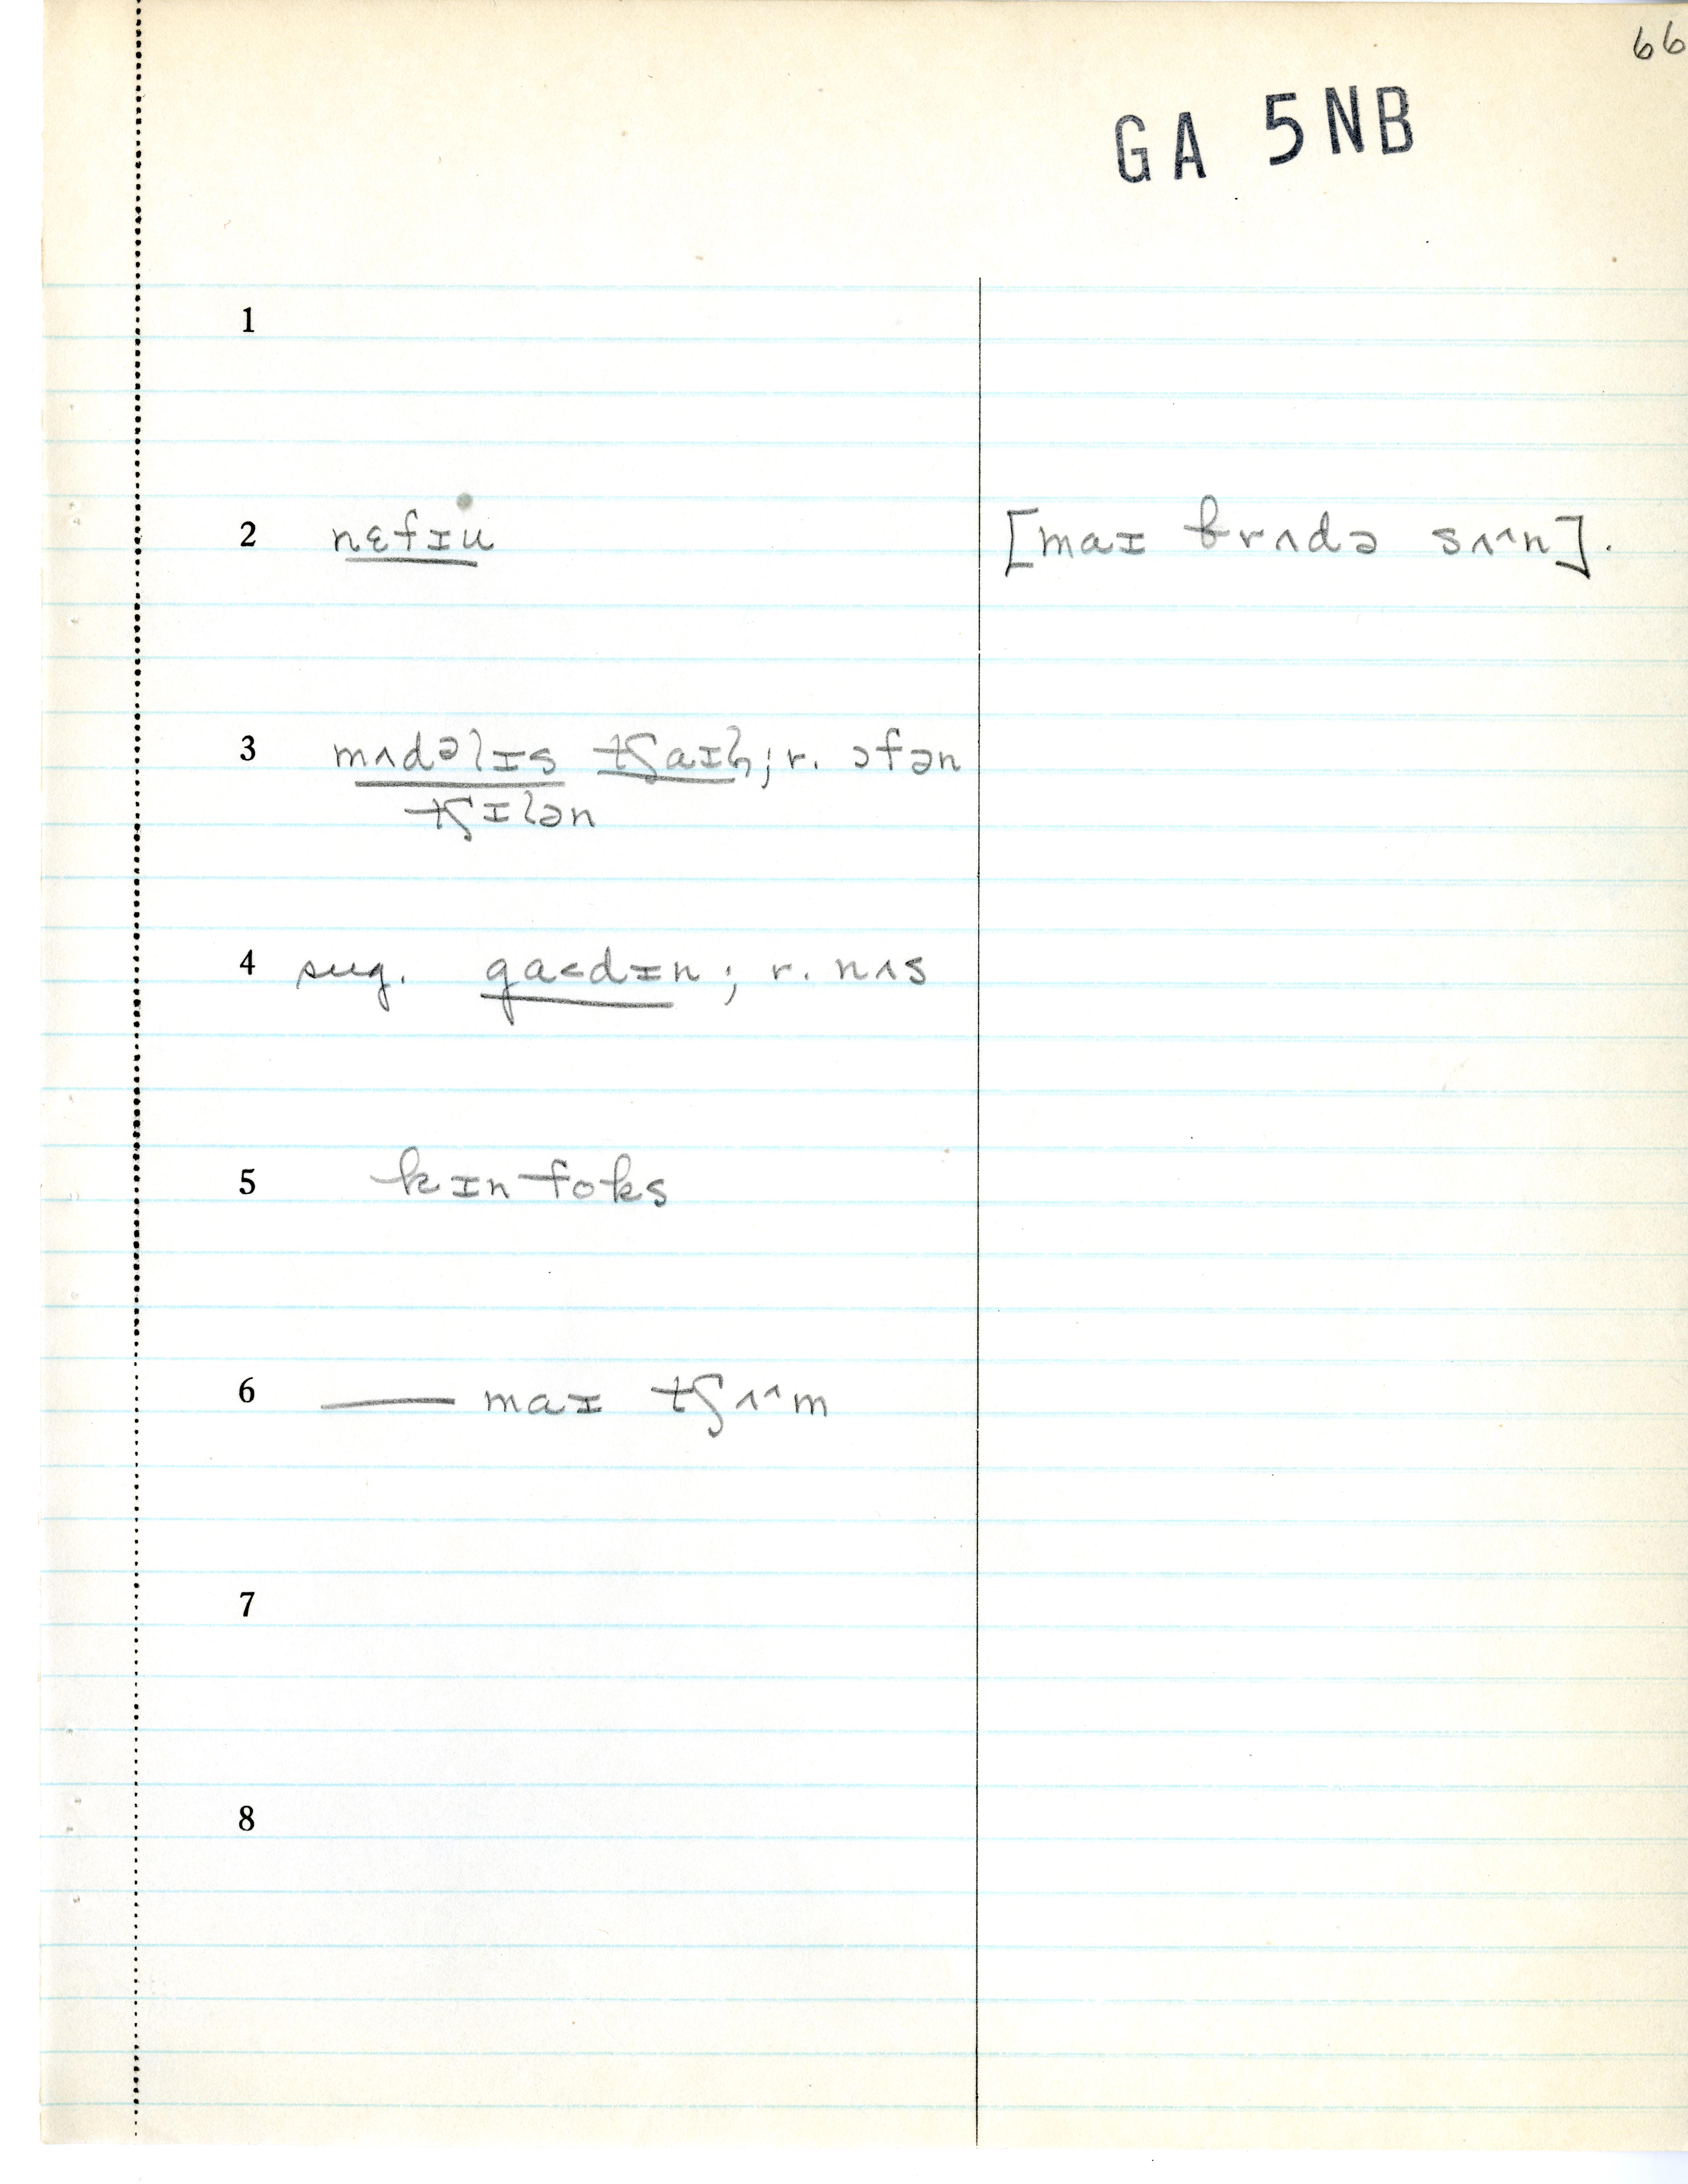 66
GA 5NB
1
2 nɛfɪu [maɪ brʌdə sʌ^n].
3 mʌdəlɪs tʃaɪl; r. ɔfən
tʃɪlən
4 sug. ga<dɪn; r. nʌs
5 kɪnfoks
6 —— maɪ tʃʌ^m
7
8